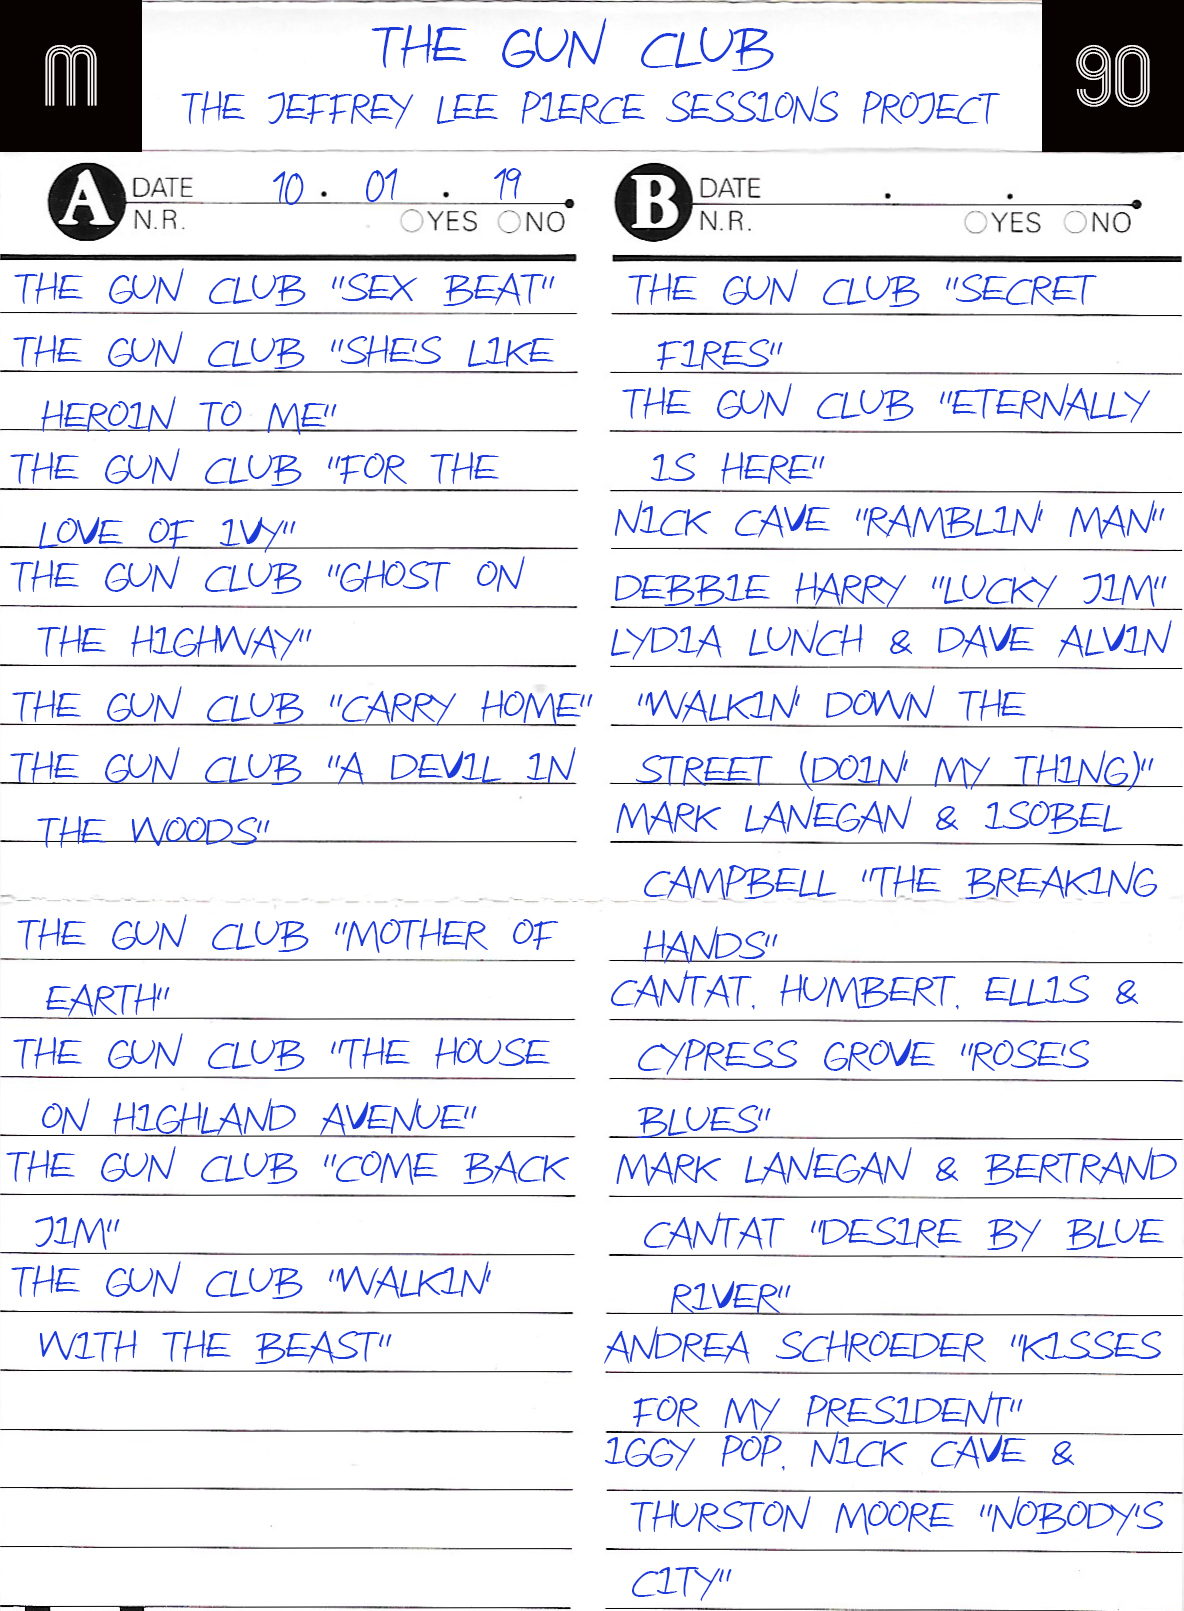 m
THE GUN CLUB
90
THE JEFFREY LEE PIERCE SESSIONS PROJECT
A DATE 10 . 01 . 19
N.R. YES NO
THE GUN CLUB "SEX BEAT"
THE GUN CLUB "SHE'S LIKE
HEROIN TO ME"
THE GUN CLUB "FOR THE
LOVE OF IVY"
THE GUN CLUB "GHOST ON
THE HIGHWAY"
THE GUN CLUB "CARRY HOME"
THE GUN CLUB "A DEVIL IN
THE WOODS"
THE GUN CLUB "MOTHER OF
EARTH"
THE GUN CLUB "THE HOUSE
ON HIGHLAND AVENUE"
THE GUN CLUB "COME BACK
JIM"
THE GUN CLUB "WALKIN'
WITH THE BEAST"
B DATE . .
N.R. YES NO
THE GUN CLUB "SECRET
FIRES"
THE GUN CLUB "ETERNALLY
IS HERE"
NICK CAVE "RAMBLIN' MAN"
DEBBIE HARRY "LUCKY JIM"
LYDIA LUNCH & DAVE ALVIN
"WALKIN' DOWN THE
STREET (DOIN' MY THING)"
MARK LANEGAN & ISOBEL
CAMPBELL "THE BREAKING
HANDS"
CANTAT, HUMBERT, ELLIS &
CYPRESS GROVE "ROSE'S
BLUES"
MARK LANEGAN & BERTRAND
CANTAT "DESIRE BY BLUE
RIVER"
ANDREA SCHROEDER "KISSES
FOR MY PRESIDENT"
IGGY POP, NICK CAVE &
THURSTON MOORE "NOBODY'S
CITY"